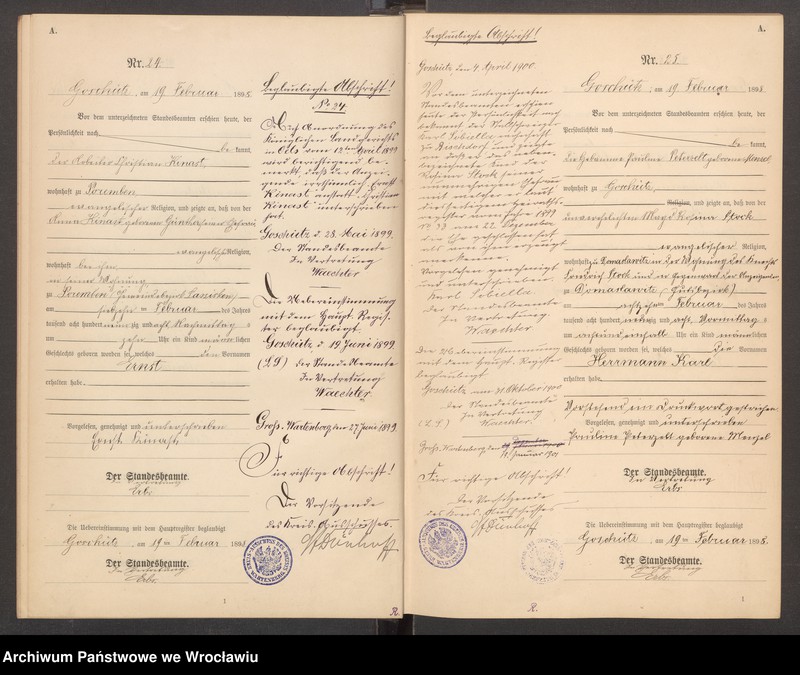 A.
Nr. 24
Goschütz, am 19 Februar 1898
Vor dem unterzeichneten Standesbeamten erschien heute, der
Persönlichkeit nach
be kannt,
der Arbeiter Christian Kinast
wohnhaft zu Poremben
evangelischer Religion, und zeigte an, daß von der
Anna Kinast geborenen
evangelisch Religion,
wohnhaft bei ihm
in seiner Wohnung
zu Poremben
am Februar des Jahres
tausend acht hundert neunzig und acht Nachmittags
um zehn Uhr ein Kind männlichen
Geschlechts geboren worden sei, welches den Vornamen
Ernst
erhalten habe.
Vorgelesen, genehmigt und unterschrieben
Ernst Kinast
Der Standesbeamte.
In Vertretung
Erbs
Die Uebereinstimmung mit dem Hauptregister beglaubigt
Goschütz, am 19 ten Februar 1898
Der Standesbeamte.
In Vertretung
Erbs
1
Beglaubigte Abschrift!
No 24.
Auf Anordnung des
Königlichen Landgerichts
in Oels vom April 1899
wird berichtigend be-
merkt, daß der Anzei-
gende irrtümlich Ernst
Kinast anstatt Christian
Kinast unterschrieben
hat.
Goschütz d. 28. Mai 1899.
Der Standesbeamte
In Vertretung
Waechter
Die Uebereinstimmung
mit dem Haupt-Regis-
ter beglaubigt.
Goschütz d. 19 Juni 1899
(L.S.) der Standesbeamte
In Vertretung
Waechter
Groß-Wartenberg den 27 Juni 1899.
Für richtige Abschrift!
Der Vorsitzende
des Kreis-Ausschusses.
R.
Beglaubigte Abschrift!
Goschütz, den 4. April 1900.
Vor dem unterzeichneten
Standesbeamten erschien
heute der Persönlichkeit nach
bekannt der
Karl
zu und zeigte
an, daß er das neben-
bezeichnete von der
Rosina Stock seiner
nunmehrigen Ehefrau
mit welcher er laut
diesseitigem Heirats-
register vom Jahre 1899
No 33 am 22 Dezember
die Ehe geschlossen hat
als von ihm erzeugt
anerkenne.
Vorgelesen genehmigt
und unterschrieben
Karl
der Standesbeamte
In Vertretung
Waechter.
Die Uebereinstimmung
mit dem Haupt-Register
beglaubigt
Goschütz am 31 Oktober 1900
der Standesbeamte
In Vertretung
(L.S.) Waechter.
Groß-Wartenberg den
12. Januar 1901
Für richtige Abschrift!
Der Vorsitzende
des Kreis-Ausschusses
R.
A.
Nr. 25
Goschütz, am 19 Februar 1898
Vor dem unterzeichneten Standesbeamten erschien heute, der
Persönlichkeit nach
be kannt,
die Hebamme Pauline geborene Menzel
wohnhaft zu Goschütz,
Religion, und zeigte an, daß von der
unverehelichten Magd Rosina Stock
evangelischer Religion,
wohnhaft zu Domaslawitz in der Wohnung des
Stock und in Gegenwart der Anzeigenden
zu Domaslawitz (Gutsbezirk)
am Februar des Jahres
tausend acht hundert neunzig und acht Vormittags
um ein halb Uhr ein Kind männlichen
Geschlechts geboren worden sei, welches die Vornamen
Herrmann Karl
erhalten habe.
Vorstehend ein Druckwort gestrichen.
Vorgelesen, genehmigt und unterschrieben
Pauline geborene Menzel
Der Standesbeamte.
In Vertretung
Erbs
Die Uebereinstimmung mit dem Hauptregister beglaubigt
Goschütz, am 19 ten Februar 1898.
Der Standesbeamte.
In Vertretung
Erbs
1
Archiwum Państwowe we Wrocławiu